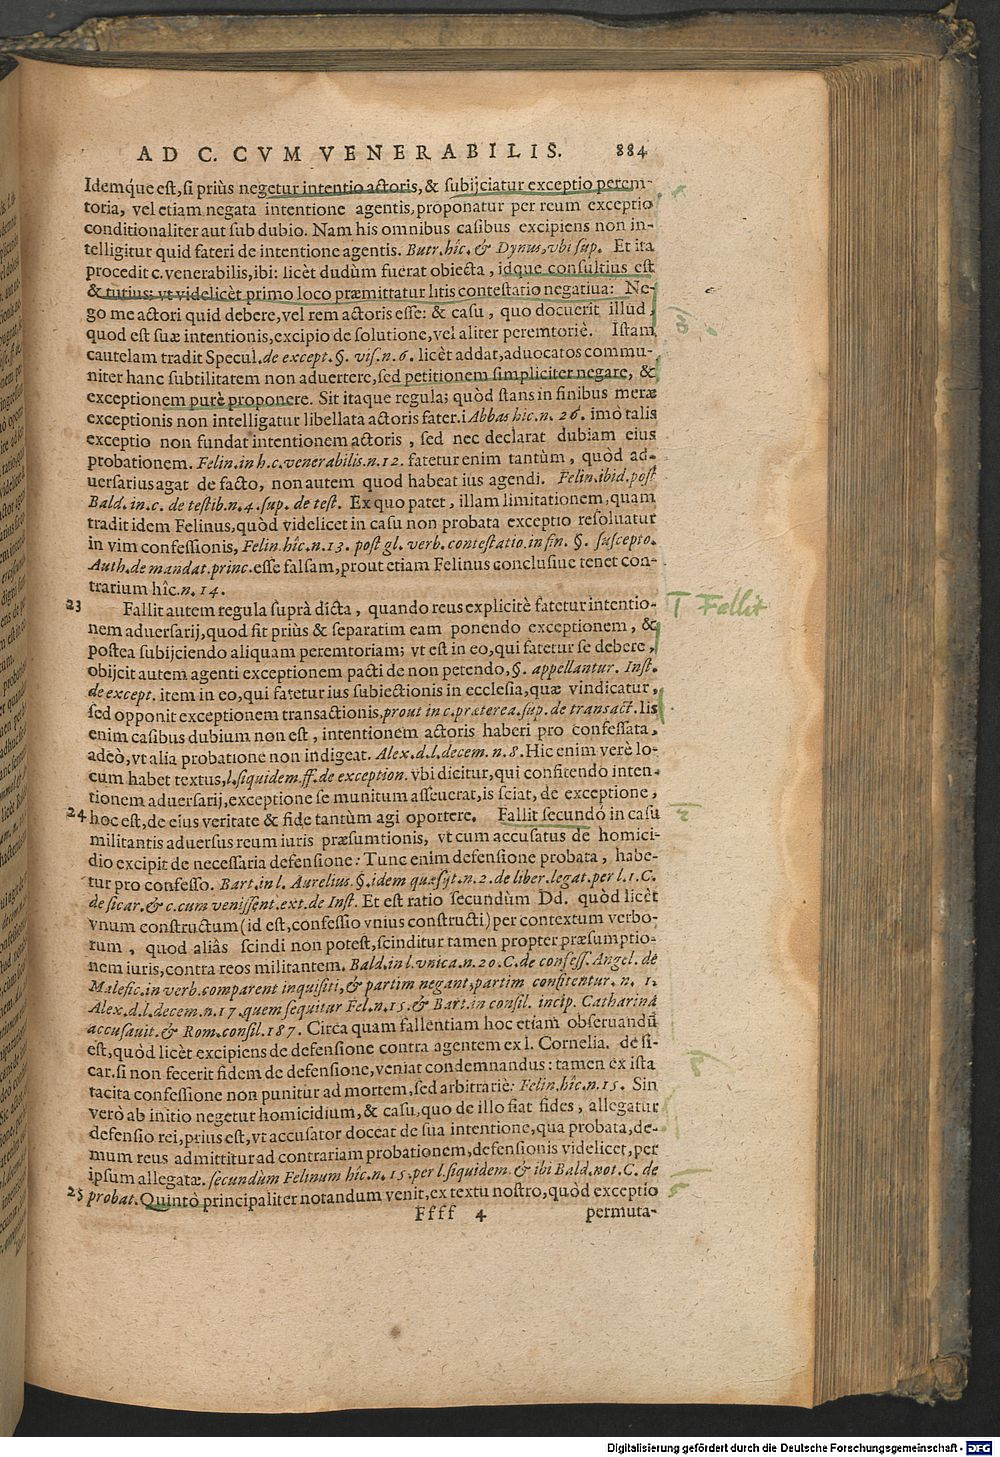 AD C. CVM VENERABILIS. 884
Idemq́ue est, si priùs negetur intentio actoris, & subijciatur exceptio perem-
toria, vel etiam negata intentione agentis, proponatur per reum exceptio
conditionaliter aut sub dubio. Nam his omnibus casibus excipiens non in-
telligitur quid fateri de intentione agentis. Butr. hîc. & Dynus, vbi sup. Et ita
procedit c. venerabilis, ibi: licèt dudùm fuerat obiecta, idque consultius est
& tutius: vt videlicèt primo loco præmittatur litis contestatio negatiua: Ne-
go me actori quid debere, vel rem actoris esse: & casu, quo docuerit illud,
quod est suæ intentionis, excipio de solutione, vel aliter peremtoriè. Istam
cautelam tradit Specul. de except. §. vis. n. 6. licèt addat, aduocatos commu-
niter hanc subtilitatem non aduertere, sed petitionem simpliciter negare, &
exceptionem purè proponere. Sit itaque regula; quòd stans in finibus meræ
exceptionis non intelligatur libellata actoris fater.i Abbas hic. n. 26. imò talis
exceptio non fundat intentionem actoris, sed nec declarat dubiam eius
probationem. Felin. in h. c. venerabilis. n. 12. fatetur enim tantùm, quòd ad-
uersarius agat de facto, non autem quod habeat ius agendi. Felin. ibid. post
Bald. in. c. de testib. n. 4. sup. de test. Ex quo patet, illam limitationem, quam
tradit idem Felinus, quòd videlicet in casu non probata exceptio resoluatur
in vim confessionis, Felin. hîc. n. 13. post gl. verb. contestatio. in fin. §. suscepto.
Auth. de mandat. princ. esse falsam, prout etiam Felinus conclusiue tenet con-
trarium hîc. n. 14.
23 Fallit autem regula suprà dicta, quando reus explicitè fatetur intentio-
nem aduersarij, quod fit priùs & separatim eam ponendo exceptionem, &
postea subijciendo aliquam peremtoriam; vt est in eo, qui fatetur se debere,
obijcit autem agenti exceptionem pacti de non petendo, §. appellantur. Inst.
de except. item in eo, qui fatetur ius subiectionis in ecclesia, quæ vindicatur,
sed opponit exceptionem transactionis, prout in c. præterea. sup. de transact. Iis
enim casibus dubium non est, intentionem actoris haberi pro confessata,
adeò, vt alia probatione non indigeat. Alex. d. l. decem. n. 8. Hic enim verè lo-
cum habet textus, l. siquidem. ff. de exception. vbi dicitur, qui confitendo inten-
tionem aduersarij, exceptione se munitum asseuerat, is sciat, de exceptione,
24 hoc est, de eius veritate & fide tantùm agi oportere. Fallit secundò in casu
militantis aduersus reum iuris præsumtionis, vt cum accusatus de homici-
dio excipit de necessaria defensione: Tunc enim defensione probata, habe-
tur pro confesso. Bart. in l. Aurelius. §. idem quæsijt. n. 2. de liber. legat. per l. 1. C.
de sicar. & c. cum venissent. ext. de Inst. Et est ratio secundùm Dd. quòd licèt
vnum constructum (id est, confessio vnius constructi) per contextum verbo-
rum, quod aliâs scindi non potest, scinditur tamen propter præsumptio-
nem iuris, contra reos militantem. Bald. in l. vnica. n. 20. C. de confess. Angel. de
Malefic. in verb. comparent inquisiti, & partim negant, partim confitentur. n. 1.
Alex. d. l. decem. n. 17. quem sequitur Fel. n. 15. & Bart. in consil. incip. Catharina
accusauit. & Rom. consil. 187. Circa quam fallentiam hoc etiam obseruandũ
est, quòd licèt excipiens de defensione contra agentem ex l. Cornelia. de si-
car. si non fecerit fidem de defensione, veniat condemnandus: tamen ex ista
tacita confessione non punitur ad mortem, sed arbitrariè: Felin. hîc. n. 15. Sin
verò ab initio negetur homicidium, & casu, quo de illo fiat fides, allegatur
defensio rei, prius est, vt accusator doceat de sua intentione, qua probata, de-
mum reus admittitur ad contrariam probationem, defensionis videlicet, per
ipsum allegatæ. secundùm Felinum hîc. n. 15. per l. siquidem. & ibi Bald. not. C. de
25 probat. Quintò principaliter notandum venit, ex textu nostro, quòd exceptio
Ffff 4 permuta-
T Fallit
Digitalisierung gefördert durch die Deutsche Forschungsgemeinschaft - DFG